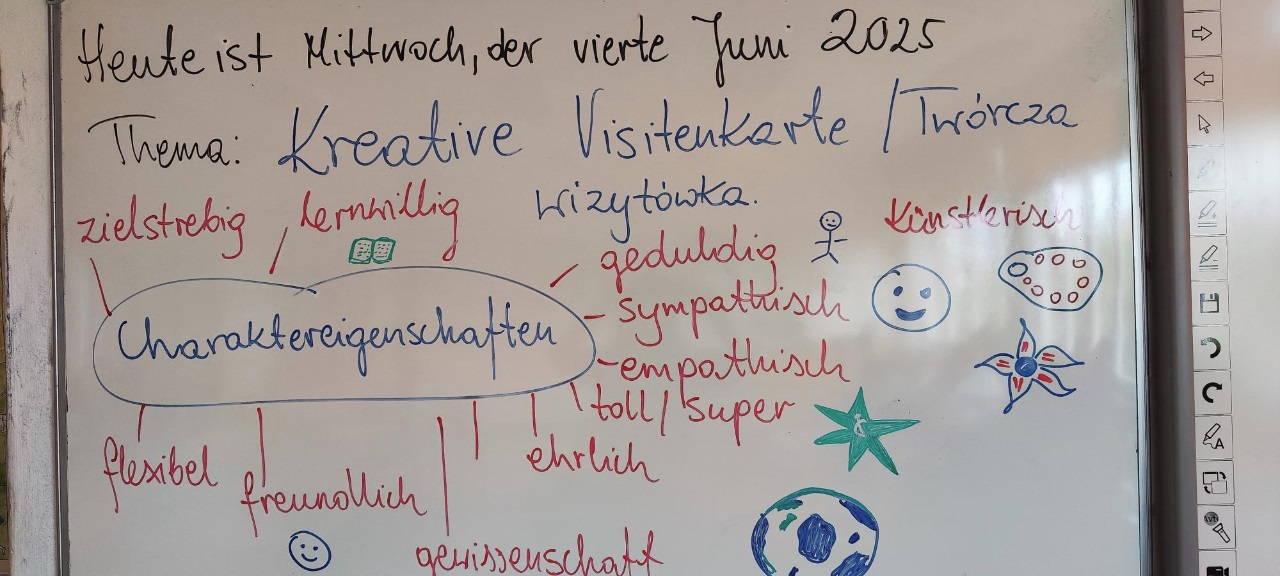 Heute ist Mittwoch, der vierte Juni 2025
Thema: Kreative Visitenkarte / Twórcza
wizytówka.
zielstrebig
lernwillig
künstlerisch
geduldig
Charaktereigenschaften
- sympathisch
- empathisch
toll / super
flexibel
freundlich
ehrlich
gewissenschaft